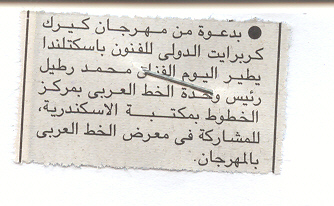 ● بدعوة من مهرجان كيرك
كربرايت الدولى للفنون باسكتلندا
يطير اليوم الفنان محمد رطيل
رئيس وحدة الخط العربى بمركز
الخطوط بمكتبة الاسكندرية،
للمشاركة فى معرض الخط العربى
بالمهرجان.